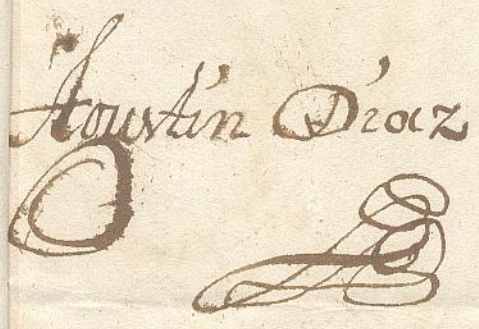 Agustin Diaz